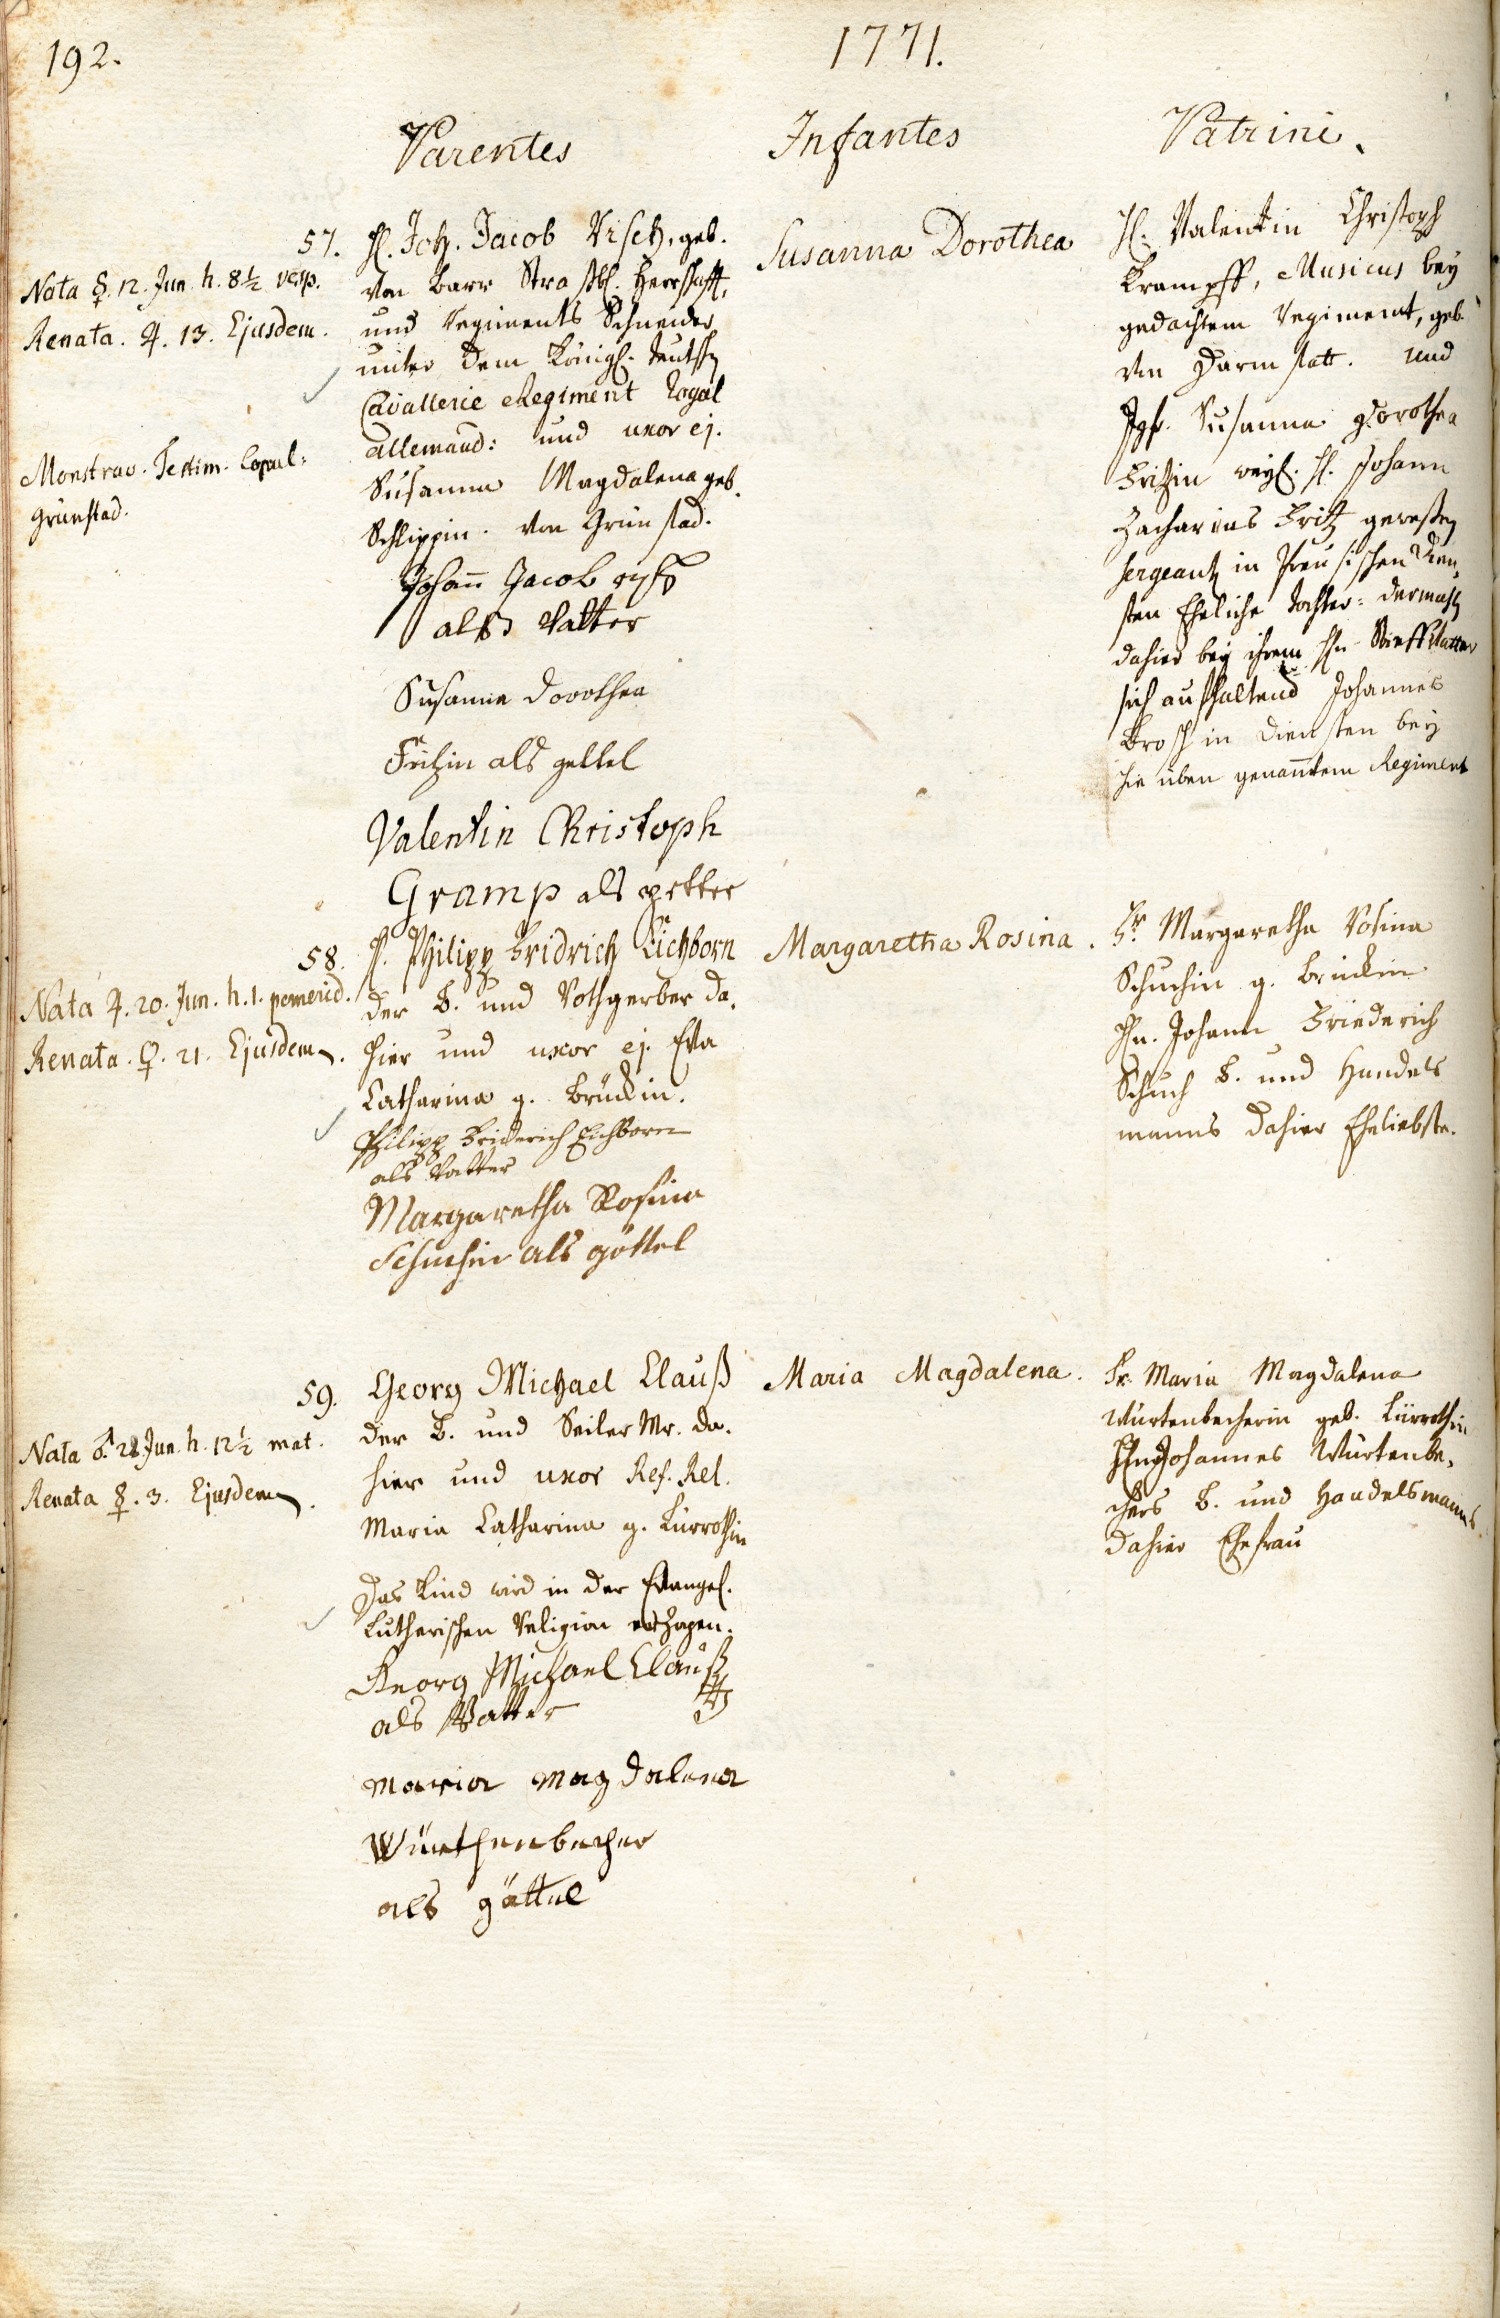 192.
1771.
Parentes
Infantes
Patrini.
57.
Nata ☿. 12. Jun. h. 8½ vesp.
Renata. ♃. 13. Ejusdem.
Monstrav. Testim. Copul:
Grünstad.
H. Joh. Jacob Risch, geb.
von Barr Straßb. Herrschafft,
und Regiments Schneider
unter dem Königl. teutschen
Cavallerie Regiment Royal
allemand: und uxor ej.
Susanna Magdalena geb.
Schlippin. von Grünstad.
Johann Jacob
alß Vatter
Susanna Dorothea
Fritzin als gettel
Valentin Christoph
Gramp als petter
Susanna Dorothea
H. Valentin Christoph
Krampff, Musicus bey
gedachtem Regiment, geb.
von Darmstatt. und
Jgfr. Susanna Dorothea
Fritzin weyl. H. Johann
Zacharias Fritz gewesten
Sergeants in Preusischen Dien,
sten Eheliche tochter: dermahlen
dahier bey ihrem Hn. Stieffvatter
sich aufhaltend Johannes
Brosch in Diensten bey
hie üben genanntem Regiment
58.
Nata ♃. 20. Jun. h. 1. pomerid.
Renata. ♀. 21. Ejusdem.
H. Philipp Fridrich Eichborn
der B. und Rothgerber da,
hier und uxor ej. Eva
Catharina g. Brückin.
Philipp Friderich Eichborn
als Vatter
Margaretha Rosina
Schuchin als göttel
Margaretha Rosina.
Fr. Margaretha Rosina
Schuchin g. Brückin
Hn. Johann Friederich
Schuch B. und Handels
manns dahier Eheliebste.
59.
Nata ♂. 2 Jun. h. 12½ mat.
Renata ☿. 3. Ejusdem.
Georg Michael Clauß
der B. und Seiler Mr. da,
hier und uxor Ref. Rel.
Maria Catharina g. Lürrothin
Das Kind wird in der Evangel.
Lutherischen Religion erzogen.
Georg Michael Clauß
als Vatter
Maria Magdalena
Würthenbecher
als göttel
Maria Magdalena.
Fr. Maria Magdalena
Würtenbecherin geb. Lürrothin
Hn Johannes Würtenbe,
chers B. und Handelsmanns
dahier Ehefrau